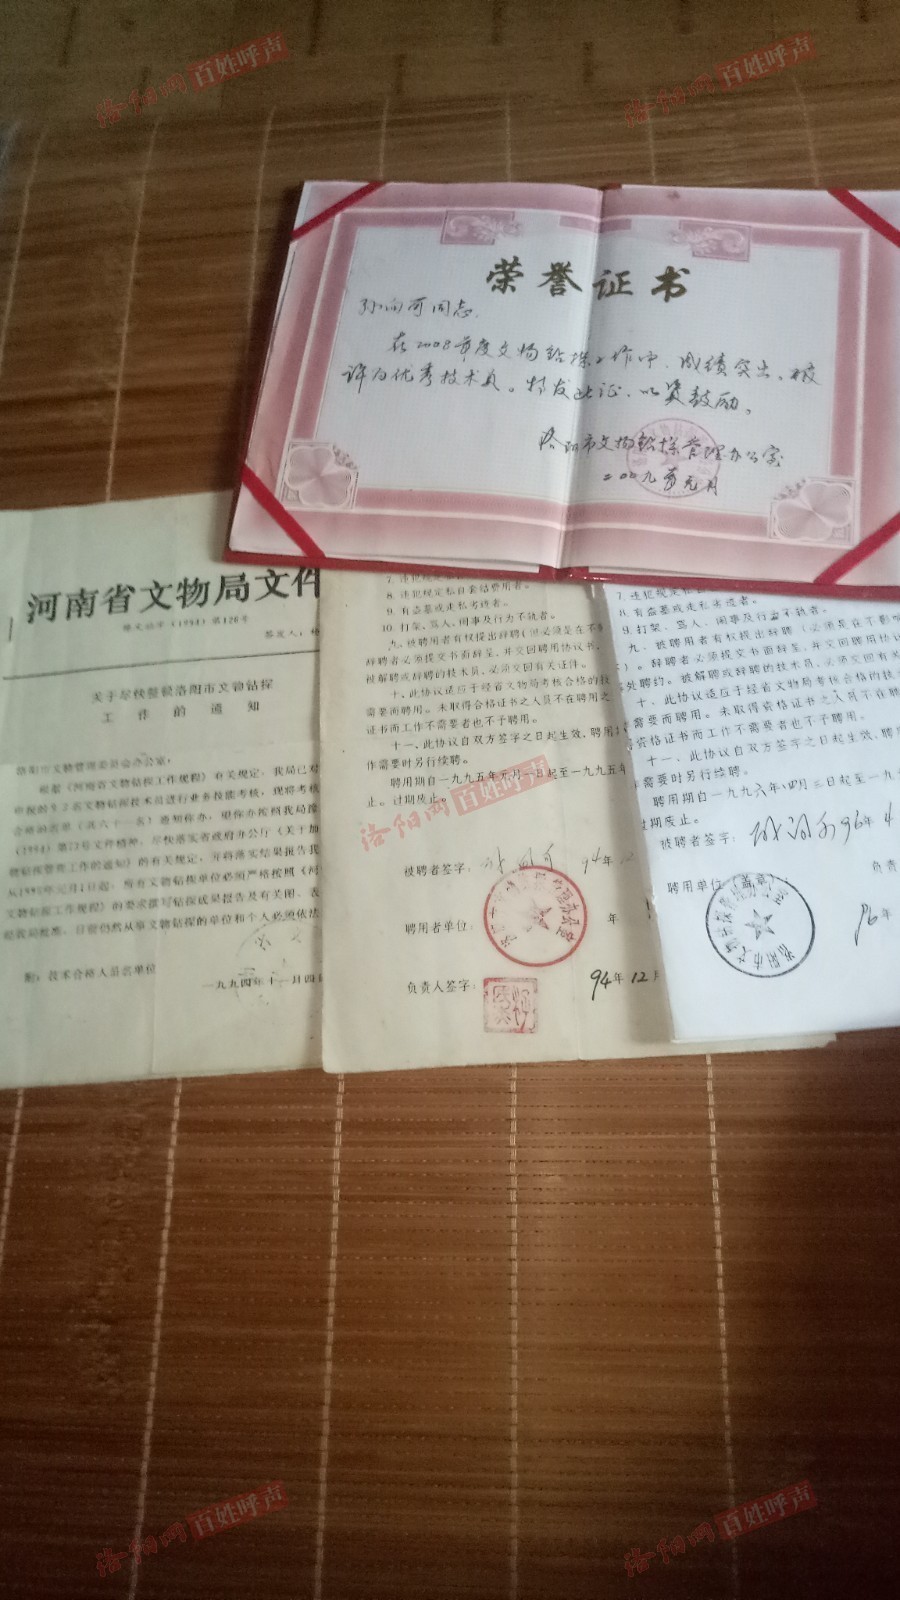 洛阳网 百姓呼声
洛阳网 百姓呼声
荣誉证书
孙向可同志
在2008年度文物钻探工作中、成绩突出、被
评为优秀技术员。特发此证、以资鼓励。
洛阳市文物钻探管理办公室
二00九年元月
河南省文物局文件
(1994)第126号
签发人:
关于尽快整顿洛阳市文物钻探
工作的通知
洛阳市文物管理委员会办公室:
根据《河南省文物钻探工作规程》有关规定,我局已对
名文物钻探技术员进行业务技能考核,现将考核
合格的名单(共六十一名)通知你办,望你办按照我局豫
(1994)第73号文件精神,尽快落实省政府办公厅《关于加
物钻探管理工作的通知》的有关规定,并将落实结果报告我
从1995年元月1日起,所有文物钻探单位必须严格按照《河
文物钻探工作规程》的要求撰写钻探成果报告及有关图、表
报我局批准。目前仍然从事文物钻探的单位和个人必须依法
附:技术合格人员名单位
一九九四年十一月四日
7. 违犯规定私自
8. 违犯规定私自套钻费用者。
9. 有盗墓或走私劣迹者。
10. 打架、骂人、闹事及行为不轨者。
九、被聘用者有权提出辞聘(但必须是在不
辞聘者必须提交书面辞呈,并交回聘用协议书。
被解聘或辞聘的技术员,必须交回有关证件。
十、此协议适应于经省文物局考核合格的技
需要而聘用。未取得合格证书之人员不在聘用之
证书而工作不需要者也不予聘用。
十一、此协议自双方签字之日起生效,聘用
作需要时另行续聘。
聘用期自一九九五年元月一日起至一九九五年
止。过期废止。
洛阳网 百姓呼声
被聘者签字: 94年12
聘用者单位: 年
负责人签字: 94年12月
7. 违犯规定
8. 有盗墓或走私劣迹者。
9. 打架、骂人、闹事及行为不轨者。
九、被聘用者有权提出辞聘(必须是在不影响
)。辞聘者必须提交书面辞呈,并交回聘用协议
处聘约。被解聘或辞聘的技术员,必须交回有关
十、此协议适应于经省文物局考核合格的技
需要而聘用。未取得资格证书之人员不在聘
资格证书而工作不需要者也不予聘用。
十一、此协议自双方签字之日起生效,聘
作需要时另行续聘。
聘用期自一九九六年四月三日起至一九
过期废止。
被聘者签字: 96年4
聘用单位(盖章):
负责
洛阳市文物钻探管理办公室
96年
洛阳网 百姓呼声
洛阳网 百姓呼声